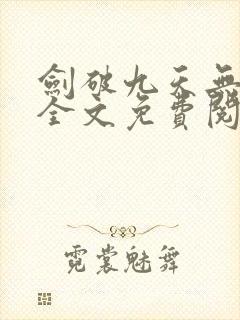 劍破九天無
全文免費閱
霓裳魅舞